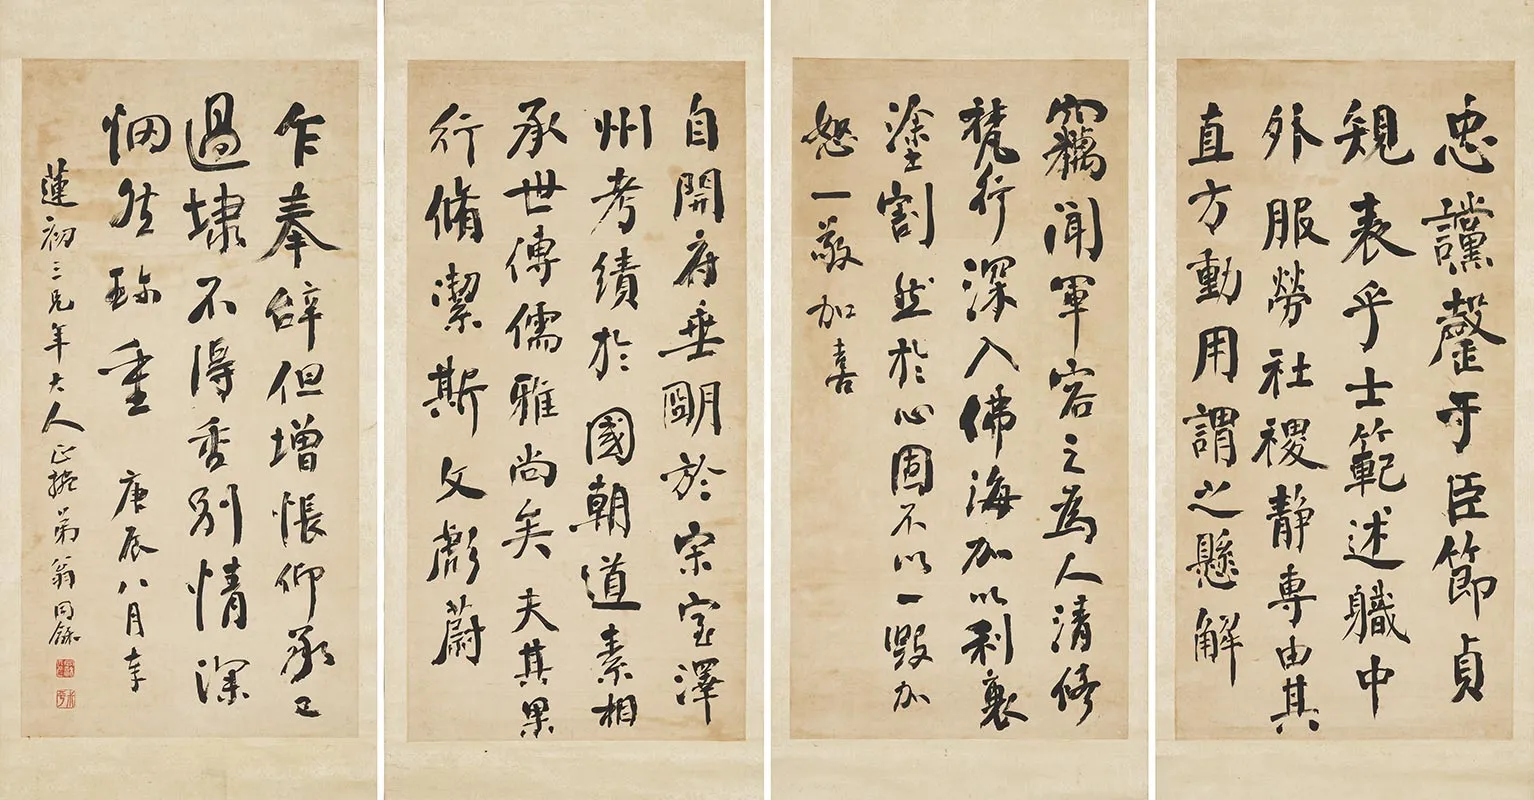 忠讜罄于臣節貞
規表乎士範述職中
外服勞社稷靜專由其
直方動用謂之懸解
竊聞軍容之為人清修
梵行深入佛海加以利衰
塗割然於心固不以一毀加
怒一敬加喜
自開府垂朙於宋室澤
州考績於國朝道素相
承世傳儒雅尚矣夫其果
行脩潔斯文彪蔚
乍奉辭但增悵仰承已
過埭不得重別情深
惘然珍重 庚辰八月奉
蓮初三兄年大人正捥弟翁同龢